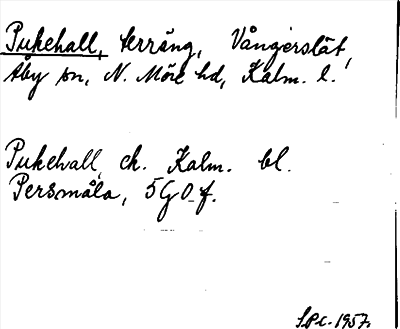 Pukehall, terräng, Vångerslät,
Åby sn, N. Möre hd, Kalm. l.
Pukehall, ek. Kalm. bl.
Persmåla, 5G0f.
1957.